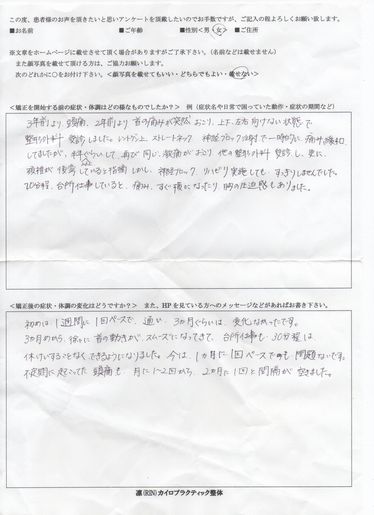 この度、患者様のお声を頂きたいと思いアンケートを頂戴したいのでお手数ですが、ご記入の程よろしくお願い致します。
■お名前 ■ご年齢 ■性別<男 女> ■ご住所
※文章をホームページに載せさせて頂く場合がありますがご了承下さい。(名前などは載せません)
また顔写真を載せて頂ける方は、ご協力お願いします。
次のどれかに○をお付け下さい。<顔写真を載せてもいい・どちらでもよい・載せない>
<矯正を開始する前の症状・体調はどの様なものでしたか?> 例(症状名や日常で困っていた動作・症状の期間など)
3年前より、頭痛、2年前より首の痛みが突然おこり、上下、左右向けない状態で
整形外科受診しました。レントゲン上、ストレートネック 神経ブロック注射で一時的に痛みは緩和
してましたが、半年ぐらいして、再び同じ激痛がおこり、他の整形外科受診し、更に
頚椎が後弯していると指摘。しかし、神経ブロック、リハビリ実施しても、すっきりしませんでした。
10分程、台所仕事していると、痛み、すぐ横になったり、胸の圧迫感もありました。
<矯正後の症状・体調の変化はどうですか?> また、HPを見ている方へのメッセージなどがあればお書き下さい。
初めは、1週間に1回ペースで、通い、3カ月ぐらいは、変化なかったです。
3カ月めから、徐々に首の動きがスムーズになってきて、台所仕事も30分程は
休けいすることなくできるようになりました。今は、1カ月に1回ペースでも問題ないです。
不定期に起こってた頭痛も、月に1~2回から、2カ月に1回と間隔が空きました。
凛(RIN)カイロプラクティック整体